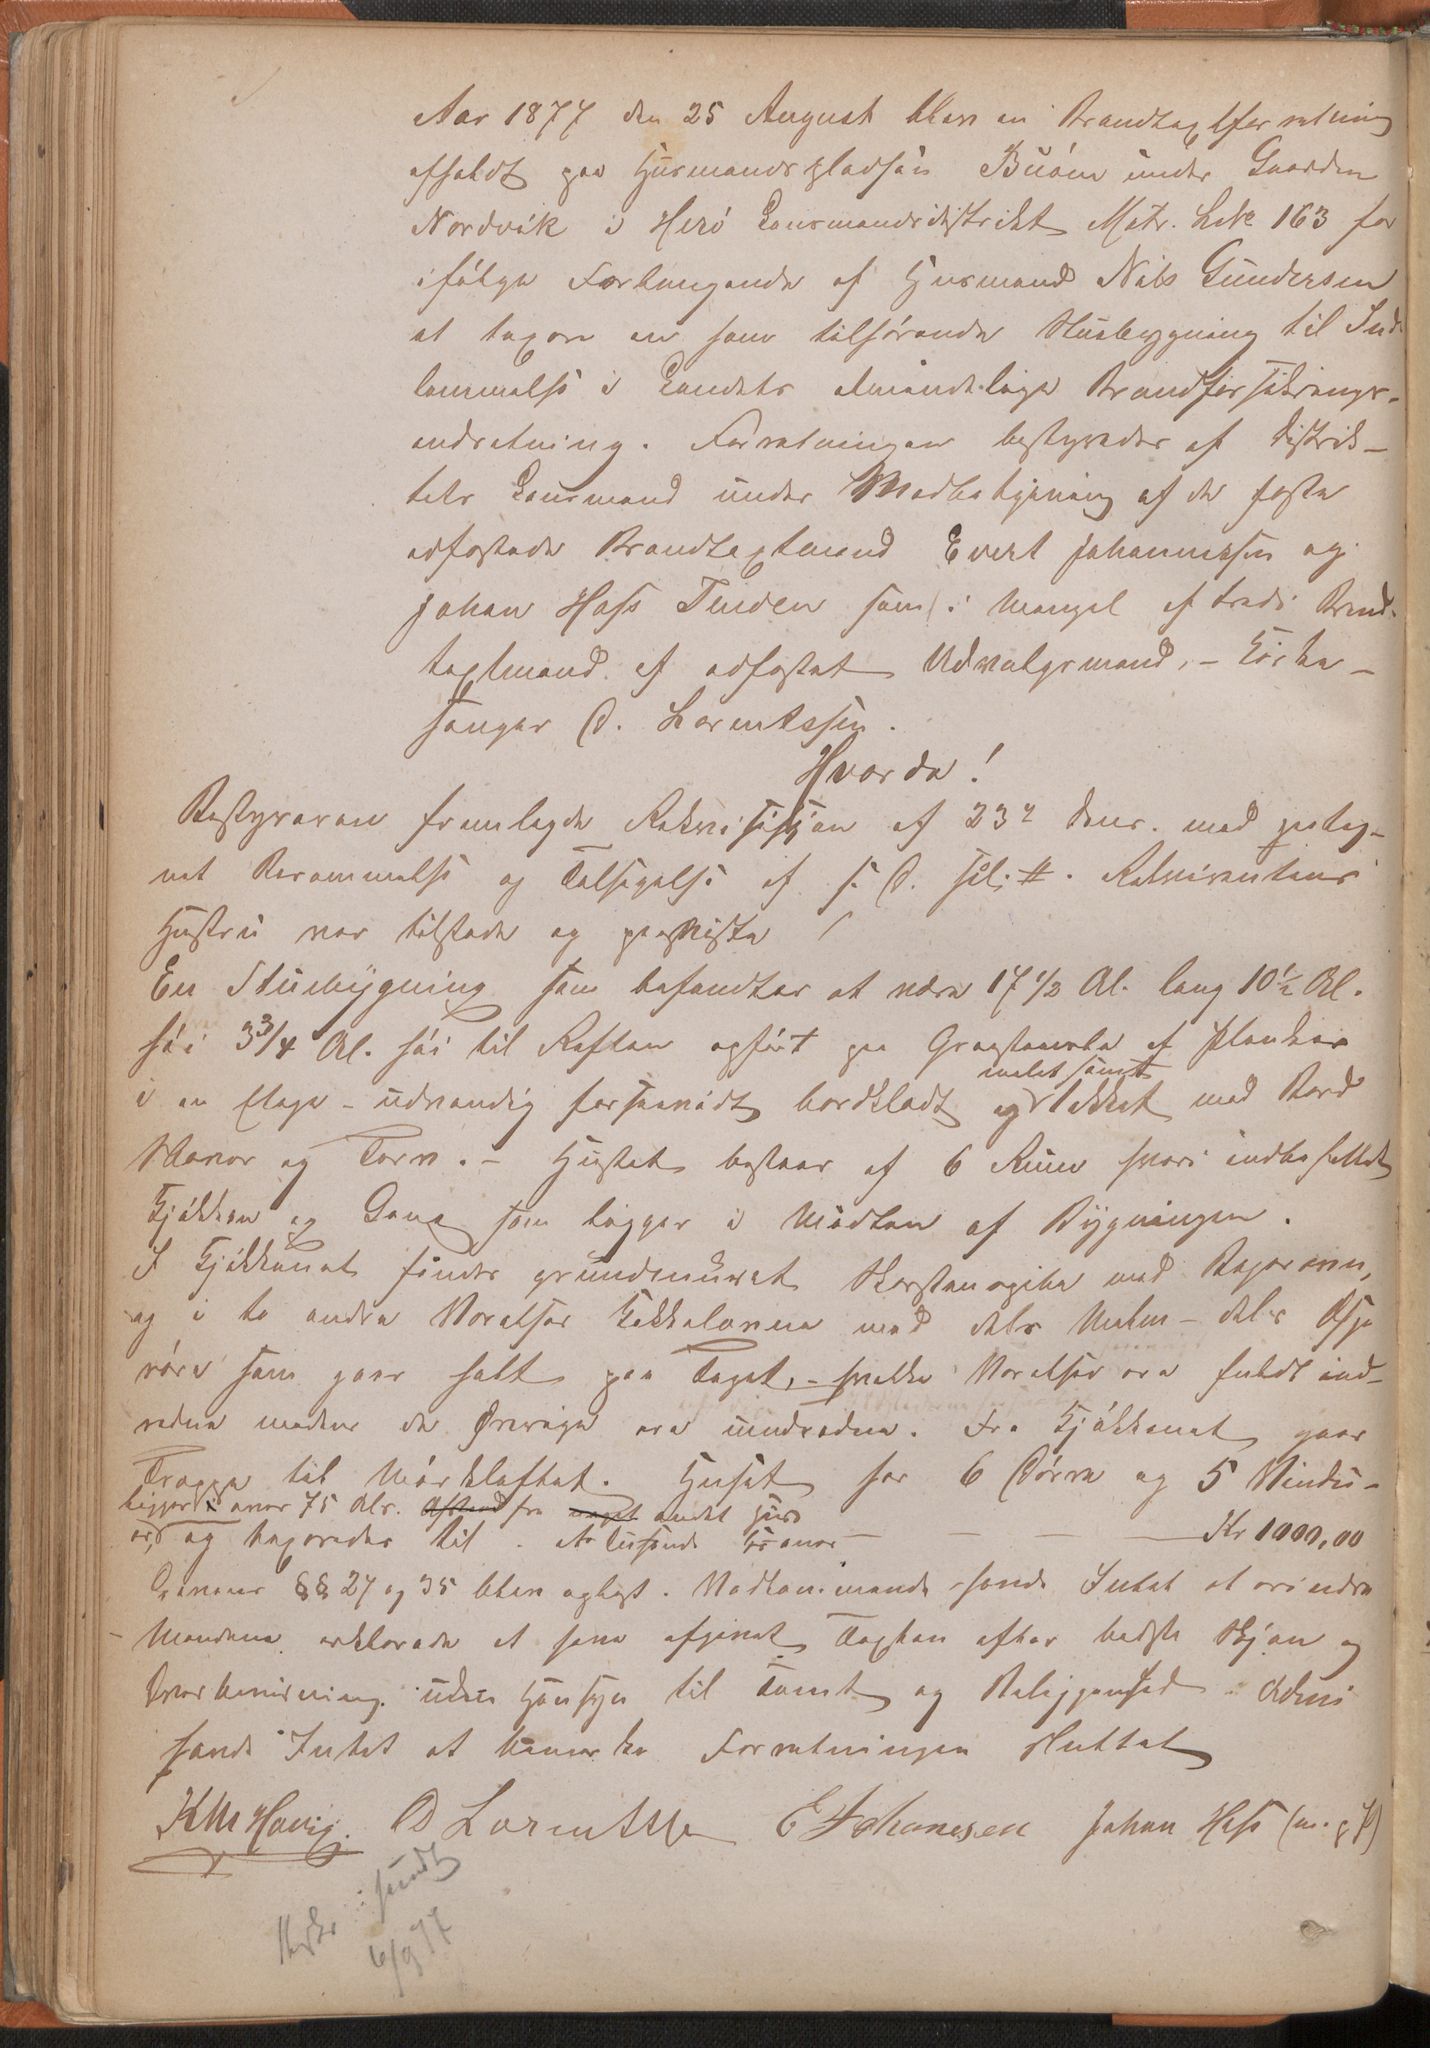 Aar 1877 den 25 August blev en Brandtaxtforretning
afholdt paa Husmandspladsen Buóen under Gaarden
Nordvik i Heró Lensmandsdistrikt Matr. Løb. 163 for
ifólge Forlangende af Husmand Nils Gundersen
at taxere en ham tilhórende Stuebygning til Ind-
lemmelse i Landets almindelige Brandforsikrings-
indretning. Forretningen bestyredes af Distrik-
tets Lensmand under Medbetjening af de faste
edfæstede Brandtaxtmænd Evert Johannessen og
Johan Hass Tenden samt i Mangel af tredie Brand-
taxtmand af edfæstet Udvalgsmand, - Kirke-
sanger O. Lorentssen.
Hvorda!
Bestyreren fremlagde Rekvisisjon af 23de dens. med paateg-
net Berammelse og Tilsigelse af s. D. Rekvirentens
Hustru var tilstede og paaviste
En Stuebygning som befandtes at være 17 1/2 Al. lang 10 1/2 Al.
3 3/4 Al. hói til Raften opfórt paa Graastensmur af Planker
i en Etage - udvendig forsaavidt bordklædt malet samt tækket med Bord
Næver og Torv. - Huset bestaar af 6 Rum hvori indbefattet
Kjókken og Gang som ligger i Midten af Bygningen.
I Kjókkenet findes grundmuret Skorstenspibe med Bagerovn,
og i to andre Værelser Kakkelovne med dels Muter - dels
rór som gaar helt paa Taget, - hvilke Værelser ere fuldt ind-
redne medens de óvrige ere uindredne. Fra Kjókkenet gaar
Trappe til Mórkloftet. Huset har 6 Dórre og 5 Vindu-
ligger over 75 Al. Afstand fra noget andet Huus
er, og taxeredes til et tusinde Kroner - - - Kr 1000,00
Lovens §§ 27 og 35 blev oplæst. Vedkommende havde Intet at erindre
Mændene erklærede at have afgivet Taxten efter bedste Skjón og
Overbevisning uden Hensyn til Tomt og Beliggenhed. Admi
havde Intet at bemærke Forretningen sluttet
K M Havig. O Lorentssen E Johanesen Johan Hass (m. p. P)
sendt
6/9 77